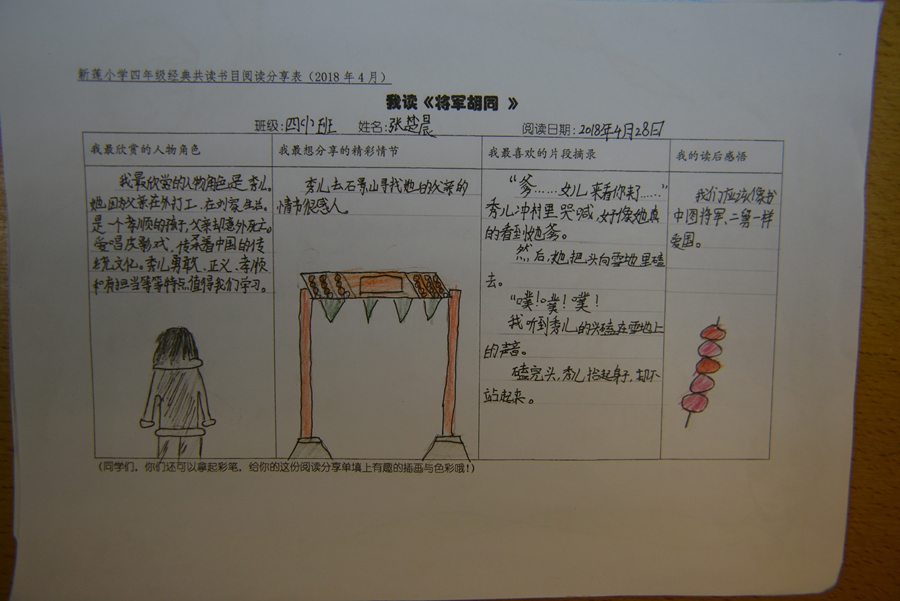 新莲小学四年级经典共读书目阅读分享表（2018年4月）
我读《将军胡同 》
班级:四(1)班 姓名:张楚晨 阅读日期:2018年4月28日
我最欣赏的人物角色
我最欣赏的人物角色是秀儿。
她,因为父亲在外打工,在刘家生活。
是一个孝顺的孩子,父亲却意外死亡。
爱唱皮影戏,传承着中国的传
统文化。秀儿勇敢、正义、孝顺
和有担当等等特点值得我们学习。
我最想分享的精彩情节
秀儿去石景山寻找她的父亲的
情节很感人。
我最喜欢的片段摘录
“爹……女儿来看你来了……”
秀儿冲村里哭喊,好像她真
的看到她爹。
然后,她把头向雪地里磕
去。
“噗!噗!噗!
我听到秀儿的头磕在雪地上
的声音。
磕完头,秀儿抬起身子,却不
站起来。
我的读后感悟
我们应该像
中图将军、二舅一样
爱国。
(同学们，你们还可以拿起彩笔，给你的这份阅读分享单填上有趣的插画与色彩哦!)